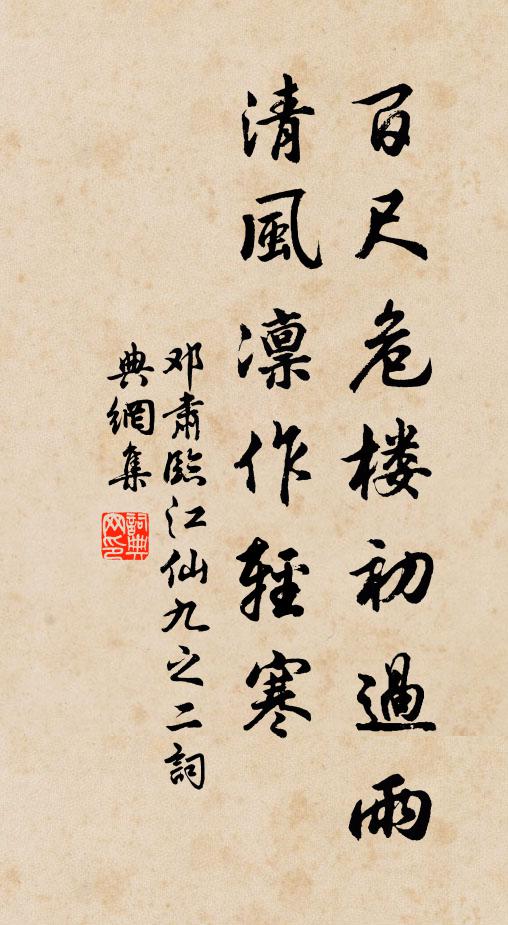 百尺危楼初過雨
清風凛作輕寒
邓肅臨江仙九之二詞
典網集
詞典網印